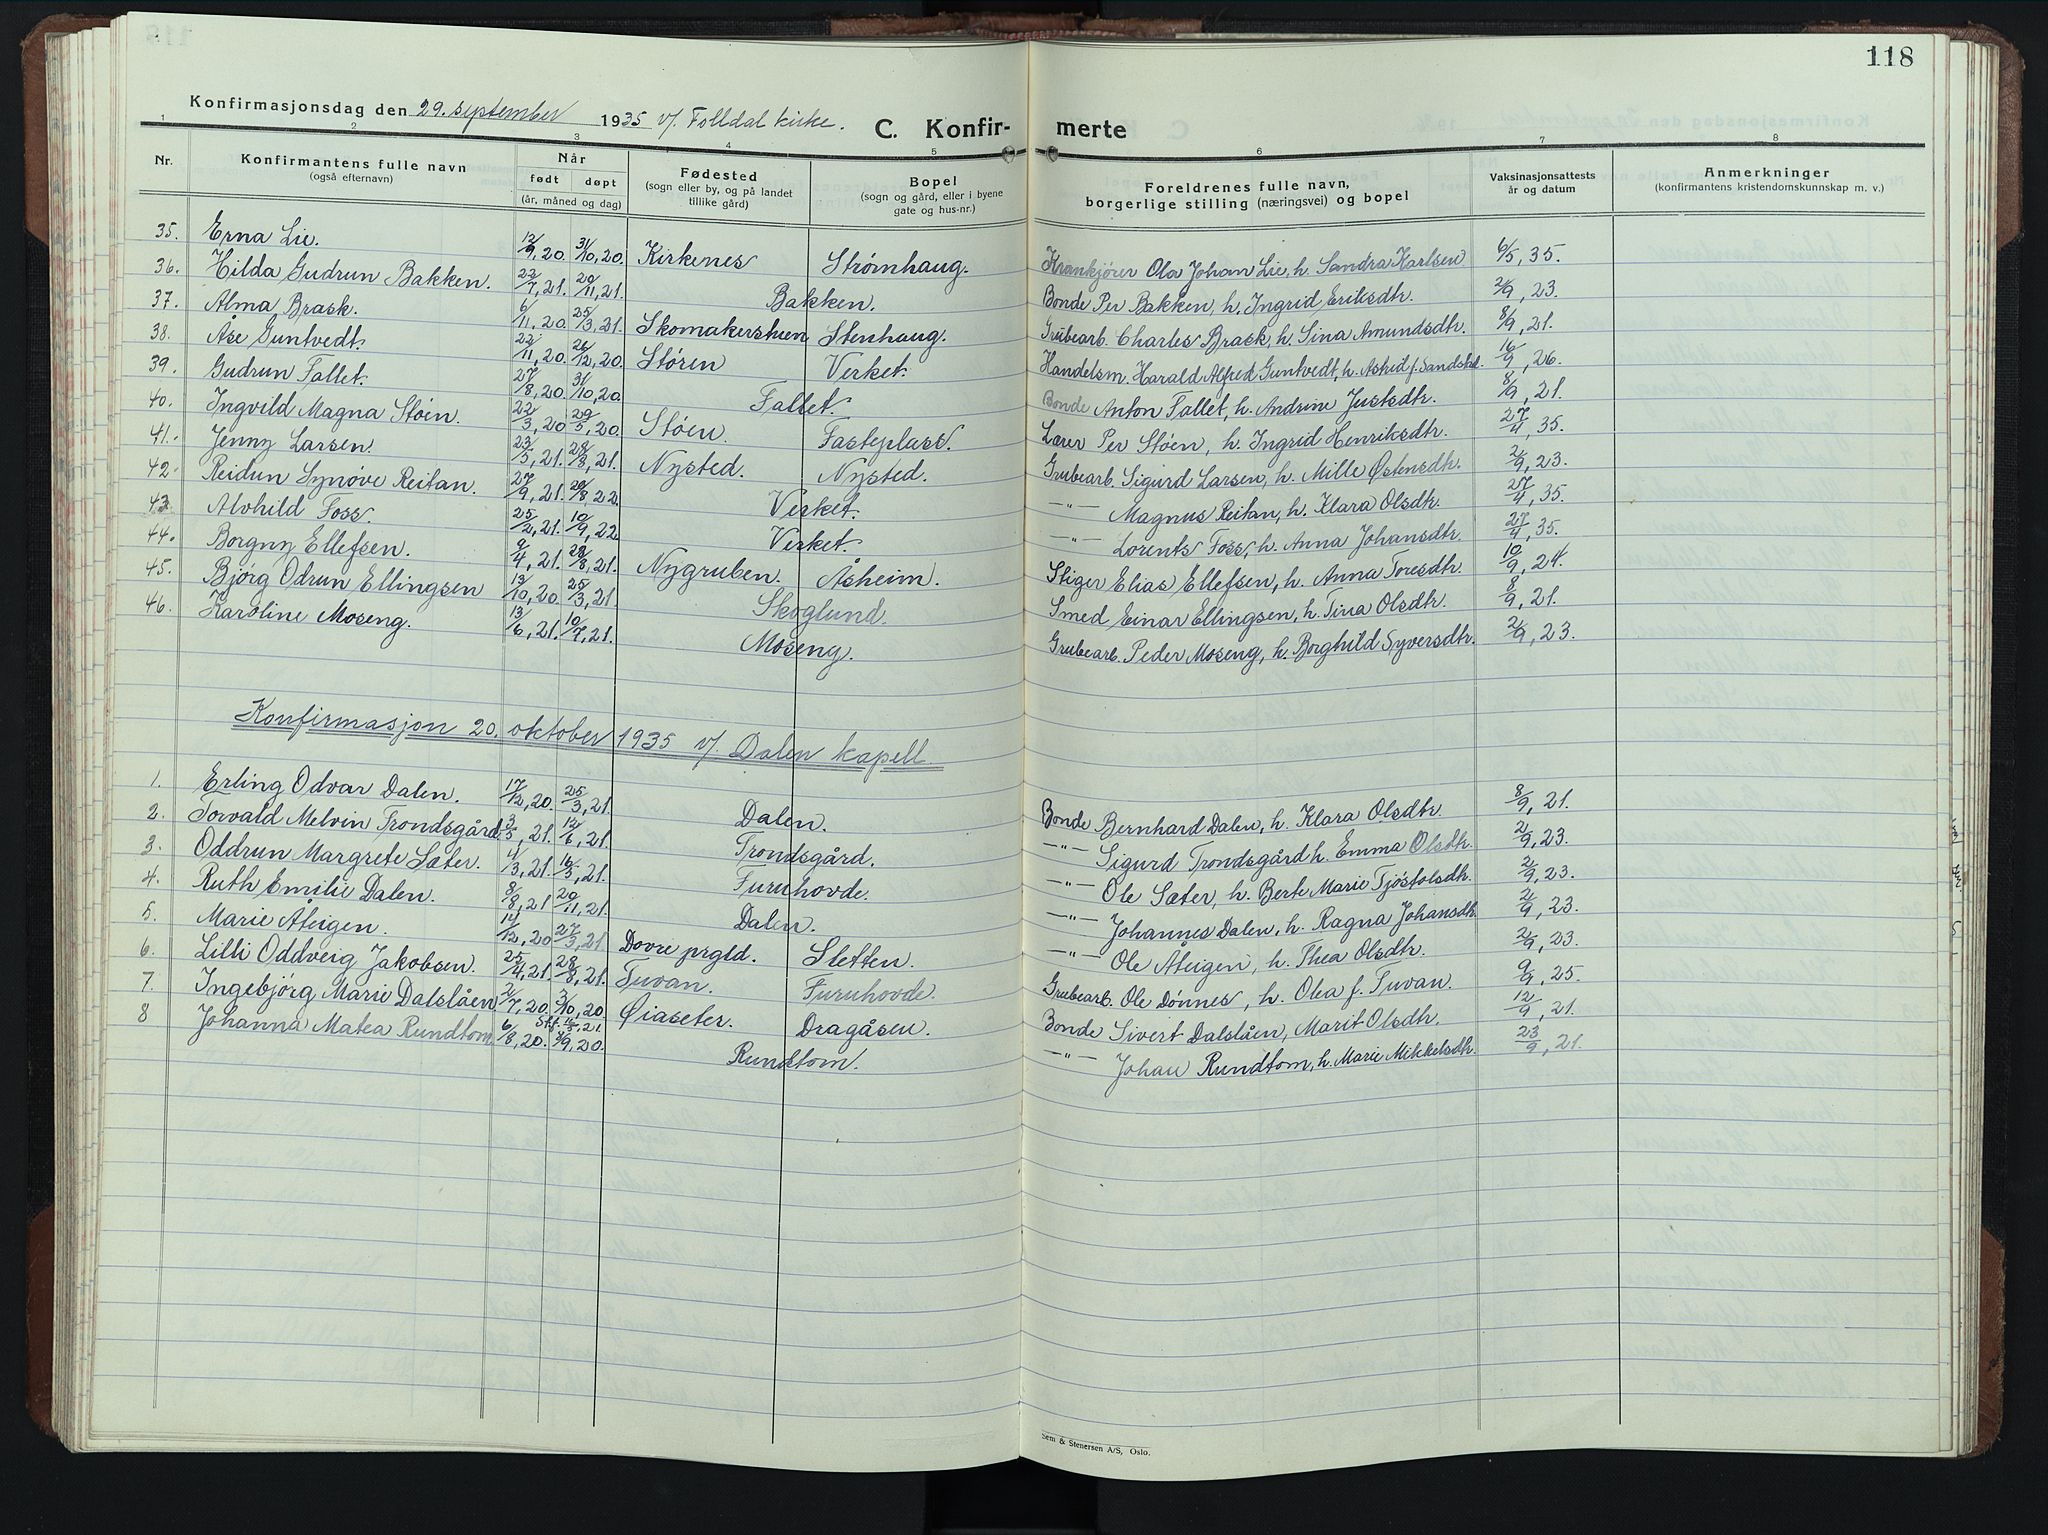 118
Konfirmasjonsdag den 29. september 1935 v/. Folldal kirke.
C. Konfir- merte
1 2 3 4 5 6 7 8
Nr. Konfirmantens fulle navn (også efternavn) Når født døpt (år, måned og dag) Fødested (sogn eller by, og på landet tillike gård) Bopel (sogn og gård, eller i byene gate og hus-nr.) Foreldrenes fulle navn, borgerlige stilling (næringsvei) og bopel Vaksinasjonsattests år og datum Anmerkninger (konfirmantens kristendomskunnskap m. v.)
35. Erna Lie. 12/9, 20. 31/10, 20. Kirkenes Strømhaug. Krankjører Ola Johan Lie, h. Sandra Karlsen 6/5, 35.
36. Hilda Gudrun Bakken. 22/7, 21. 20/11, 21. Bakken. Bonde Per Bakken, h. Ingrid Eriksdtr. 2/9, 23.
37. Alma Brask. 6/11, 20. 25/3, 21. Skomakerstuen Stenhaug. Grubearb. Charles Brask, h. Sina Amundsdtr. 8/9, 21.
38. Åse Guntvedt. 22/11, 20. 26/12, 20. Støren Verket. Handelsm. Harald Alfred Guntvedt, h. Astrid f. 16/9, 26.
39. Gudrun Fallet. 27/8, 20. 31/10, 20. Fallet. Bonde Anton Fallet, h. Andrine Justsdtr. 8/9, 21.
40. Ingvild Magna Støen. 22/3, 20. 29/5, 20. Støen Fasteplass. Lærer Per Støen, h. Ingrid Henriksdtr. 27/4, 35.
41. Jenny Larsen. 23/5, 21. 28/8, 21. Nysted. Nysted. Grubearb. Sigurd Larsen, h. Mille Østensdtr. 2/9, 23.
42. Reidun Synøve Reitan. 27/9, 21. 20/8 22. Verket. —"— Magnus Reitan, h. Klara Olsdtr. 27/4, 35.
43. Alvhild Foss. 25/2, 21. 10/9, 22. Verket. —"— Lorents Foss, h. Anna Johansdtr. 27/4, 35.
44. Borgny Ellefsen. 9/4, 21. 28/8, 21. Nygruben. Åsheim. Stiger Elias Ellefsen, h. Anna Toresdtr. 10/9, 24.
45. Bjørg Odrun Ellingsen 13/10, 20. 25/3, 21. Skoglund. Smed Einar Ellingsen, h. Tina Olsdtr. 8/9, 21.
46. Karoline Moseng. 13/6, 21. 10/7, 21. Moseng. Grubearb. Peder Moseng, h. Borghild Syversdtr. 2/9, 23.
Konfirmasjon 20. oktober 1935 v/. Dalen kapell.
1. Erling Odvar Dalen. 17/12, 20. 25/3, 21. Dalen. Bonde Bernhard Dalen, h. Klara Olsdtr. 8/9, 21.
2. Torvald Melvin Trondsgård. 3/5, 21. 12/6, 21. Trondsgård. —"— Sigurd Trondsgård h. Emma Olsdtr. 2/9, 23.
3. Oddrun Margrete Sæter. 4/3, 21. 16/3, 21. Furuhovde. —"— Ole Sæter, h. Berte Marie Tjøstolsdtr. 2/9, 23.
4. Ruth Emilie Dalen. 8/8, 21 20/11, 21. Dalen. —"— Johannes Dalen, h. Ragna Johansdtr. 2/9, 23.
5. Marie Åteigen. 14/12, 20 27/3, 21. Dovre prgld. Sletten. —"— Ole Åteigen, h. Thea Olsdtr. 2/9, 23.
6. Lilli Oddveig Jakobsen. 25/4, 21. 28/8, 21. Tuvan. Furuhovde. Grubearb. Ole Dønnes, h. Olea f. Tuvan. 9/9, 25.
7. Ingebjørg Marie Dalslåen 2/7, 20. 3/10, 20 Øiaseter. Dragåsen. Bonde Sivert Dalslåen, Marit Olsdtr. 12/9, 21.
8 Johanna Matea Rundtom. 6/8, 20. 2/9, 20. Rundtom. —"— Johan Rundtom, h. Marie Mikkelsdtr. 23/9, 21.
Sem & Stenersen A/S, Oslo.